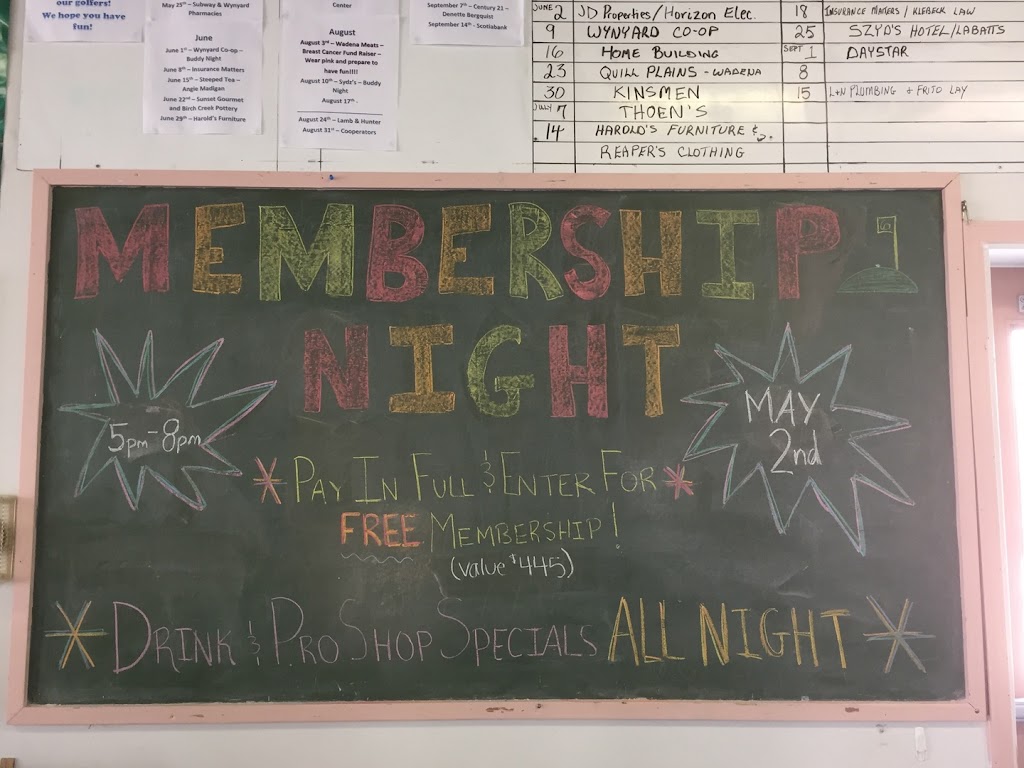 our golfers!
We hope you have
fun!
May 25th – Subway & Wynyard
Pharmacies
June
June 1st – Wynyard Co-op –
Buddy Night
June 8th – Insurance Matters
June 15th – Steeped Tea –
Angie Madigan
June 22nd – Sunset Gourmet
and Birch Creek Pottery
June 29th – Harold's Furniture
Center
August
August 3rd – Wadena Meats –
Breast Cancer Fund Raiser –
Wear pink and prepare to
have fun!!!!
August 10th – Sydz's – Buddy
Night
August 17th -
August 24th – Lamb & Hunter
August 31st – Cooperators
September 7th – Century 21 –
Denette Bergquist
September 14th - Scotiabank
JUNE 2 JD Properties/Horizon Elec.
9 WYNYARD CO-OP
16 HOME BUILDING
23 QUILL PLAINS - WADENA
30 KINSMEN
JULY 7 THOEN'S
14 HAROLD'S FURNITURE &
REAPER'S CLOTHING
18 INSURANCE MATTERS / KLEBECK LAW
25 SZYD'S HOTEL/LABATTS
SEPT 1 DAYSTAR
8
15 L+N PLUMBING + FRITO LAY
MEMBERSHIP
NIGHT
5pm-8pm
MAY
2nd
*PAY IN FULL & ENTER FOR*
FREE MEMBERSHIP!
(value $445)
*DRINK & PRO SHOP SPECIALS ALL NIGHT*